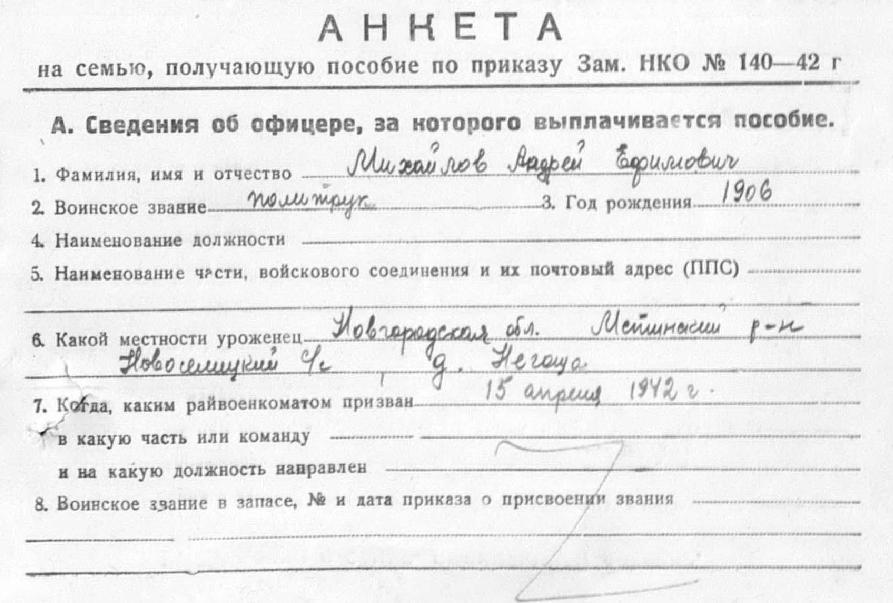 АНКЕТА
на семью, получающую пособие по приказу Зам. НКО № 140—42 г
А. Сведения об офицере, за которого выплачивается пособие.
1. Фамилия, имя и отчество Михайлов Андрей Ефимович
2. Воинское звание политрук 3. Год рождения 1906
4. Наименование должности
5. Наименование части, войскового соединения и их почтовый адрес (ППС)
6. Какой местности уроженец Новгородская обл. Мстинский р-н
Новоселицкий с/с, д. Негоща
7. Когда, каким райвоенкоматом призван 15 апреля 1942 г.
в какую часть или команду
и на какую должность направлен
8. Воинское звание в запасе, № и дата приказа о присвоении звания